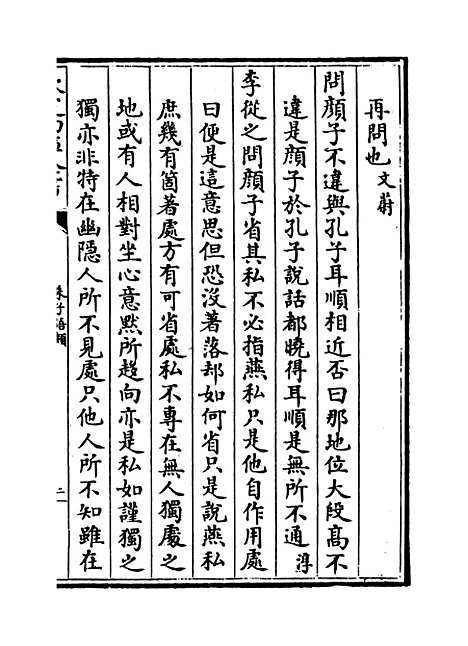 再問也文蔚
問顔子不違與孔子耳順相近否曰那地位大段髙不
違是顔子於孔子說話都曉得耳順是無所不通淳
李從之問顔子省其私不必指燕私只是他自作用處
曰便是這意思但恐沒著落却如何省只是說燕私
庶幾有箇著處方有可省處私不專在無人獨處之
地或有人相對坐心意黙所趨向亦是私如謹獨之
獨亦非特在幽隠人所不見處只他人所不知雖在
朱子語類
二